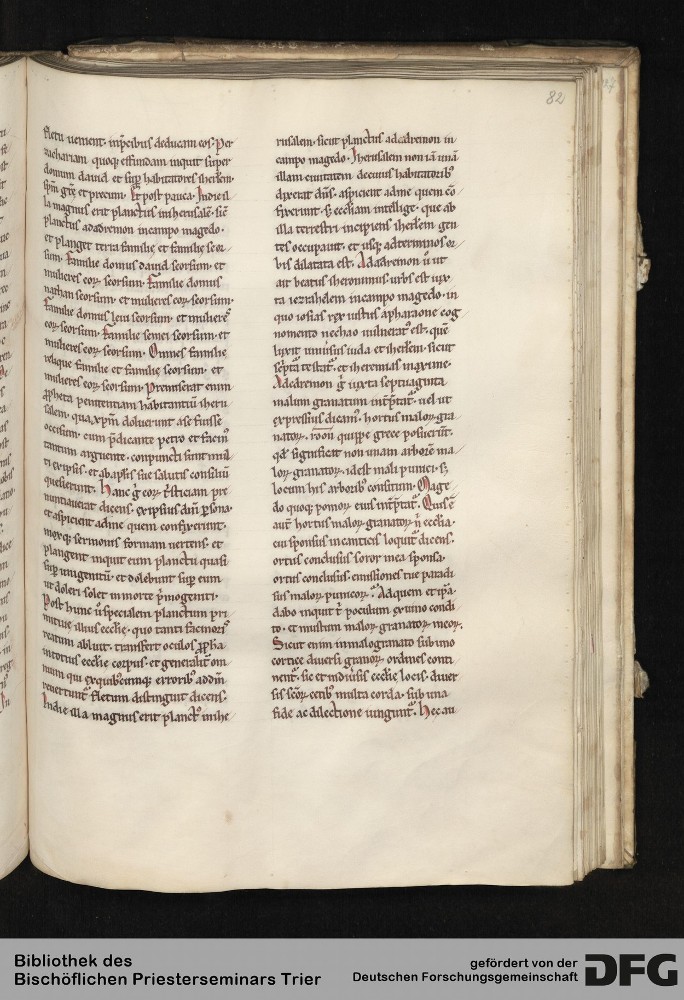 82
fletu uenient. inp̄cibus deducam eos. Per
zachariam quoq; effundam inquit super
domum dauid et sup̄ habitatores ih̄erl̄em
sp̄m gr̄e et precum. Et post pauca. Indie il
la magnus erit planctus inihersalē. sic̄
planctus adadremon incampo magedo.
et planget terra familie et familie seor
sum. Familie domus dauid seorsum. et
mulieres eoꝝ seorsum. Familie domus
nathan seorsum. et mulieres eoꝝ seorsum.
Familie domus leui seorsum. et mulieres
eoꝝ seorsum. Familie semei seorsum. et
mulieres eoꝝ seorsum. Omnes familie
relique familie et familie seorsum. et
mulieres eoꝝ seorsum. Premiserat enim
ꝓpheta penitentiam habitantiū iheru
salem. qua xp̄m doluerunt a se fuisse
occisum. cum p̄dicante petro et facinꝰ
tantum arguente. conpuncti sunt
ti ex ipsis. et abaptis sue salutis consiliū
quesierunt. Hanc g̊ eoꝝ t̓sticiam pre
nuntiauerat dicens. ex ipsius dn̄i ꝑsona.
et aspicient adme quem confixerunt.
morq; sermonis formam uertens. et
plangent inquit eum planctu quasi
sup̄ unigenitū. et dolebunt sup̄ eum
ut doleri solet in morte p̓mogeniti.
Post hunc u̓ specialem planctum pri
mitiue illius eccl̄ie. quo tanti facinoris
reatum abluit. transfert oculos ꝓpha
in totius eccl̄ie corpus. et generalit̓ om
nium qui ex quibuscumq; erroribꝰ addn̄m
reuertunt̓. fletum distinguit dicens.
Indie illa magnus erit planctꝰ in ihe
rusalem. sicut planctus adadremon in
campo magedo. Iherusalem non iā unā
illam ciuitatem decuius habitatoribꝰ
dixerat dn̄s. aspicient adme quem cō
fixerunt. s; eccl̄iam intellige. que ab
illa terrestri incipiens iherl̄em gen
tes occupauit. et usq; adterminos or
bis dilatata est. Adadremon u̓ ut
ait beatus iheronimus. urbs est iux
ta iezrahelem incampo magedo. in
quo iosias rex iustus apharaone cog
nomento nechao uulneratꝰ est. quē
luxit uniuersus iuda et iherl̄em. sicut
sc̓pta testat̓. et iheremias maxime.
Adadremon g̊ iuxta septuaginta
malum granatum int̓p̄tat̓. uel ut
expressius dicam. hortus maloꝝ gra
natoꝝ. roon quippe grece posuerūt.
qd̄ significat non unam arborē ma
loꝝ granatoꝝ. idest mali punici. s;
locum his arboribꝰ consitum. Mage
do quoq; pomoꝝ eius int̓p̄tat̓. Quis ē
aut̄ hortus maloꝝ granatoꝝ n̓ eccl̄ia.
cui sponsus in canticis loquit̓ dicens.
ortus conclusus soror mea sponsa.
ortus conclusus. emissiones tue paradi
sus maloꝝ punicoꝝ. Ad quem et ip̄a.
dabo inquit t̓ poculum ex uino condi
to. et mustum maloꝝ granatoꝝ meoꝝ.
Sicut enim in malogranato sub uno
cortice diuersi granoꝝ ordines conti
nent̓. sic et in diuersis eccl̄ie locis. diuer
sis sc̄oꝝ cetibꝰ multa corda. sub una
fide ac dilectione iungunt̓. Hec au
Bibliothek des
Bischöflichen Priesterseminars Trier
gefördert von der
Deutschen Forschungsgemeinschaft
DFG